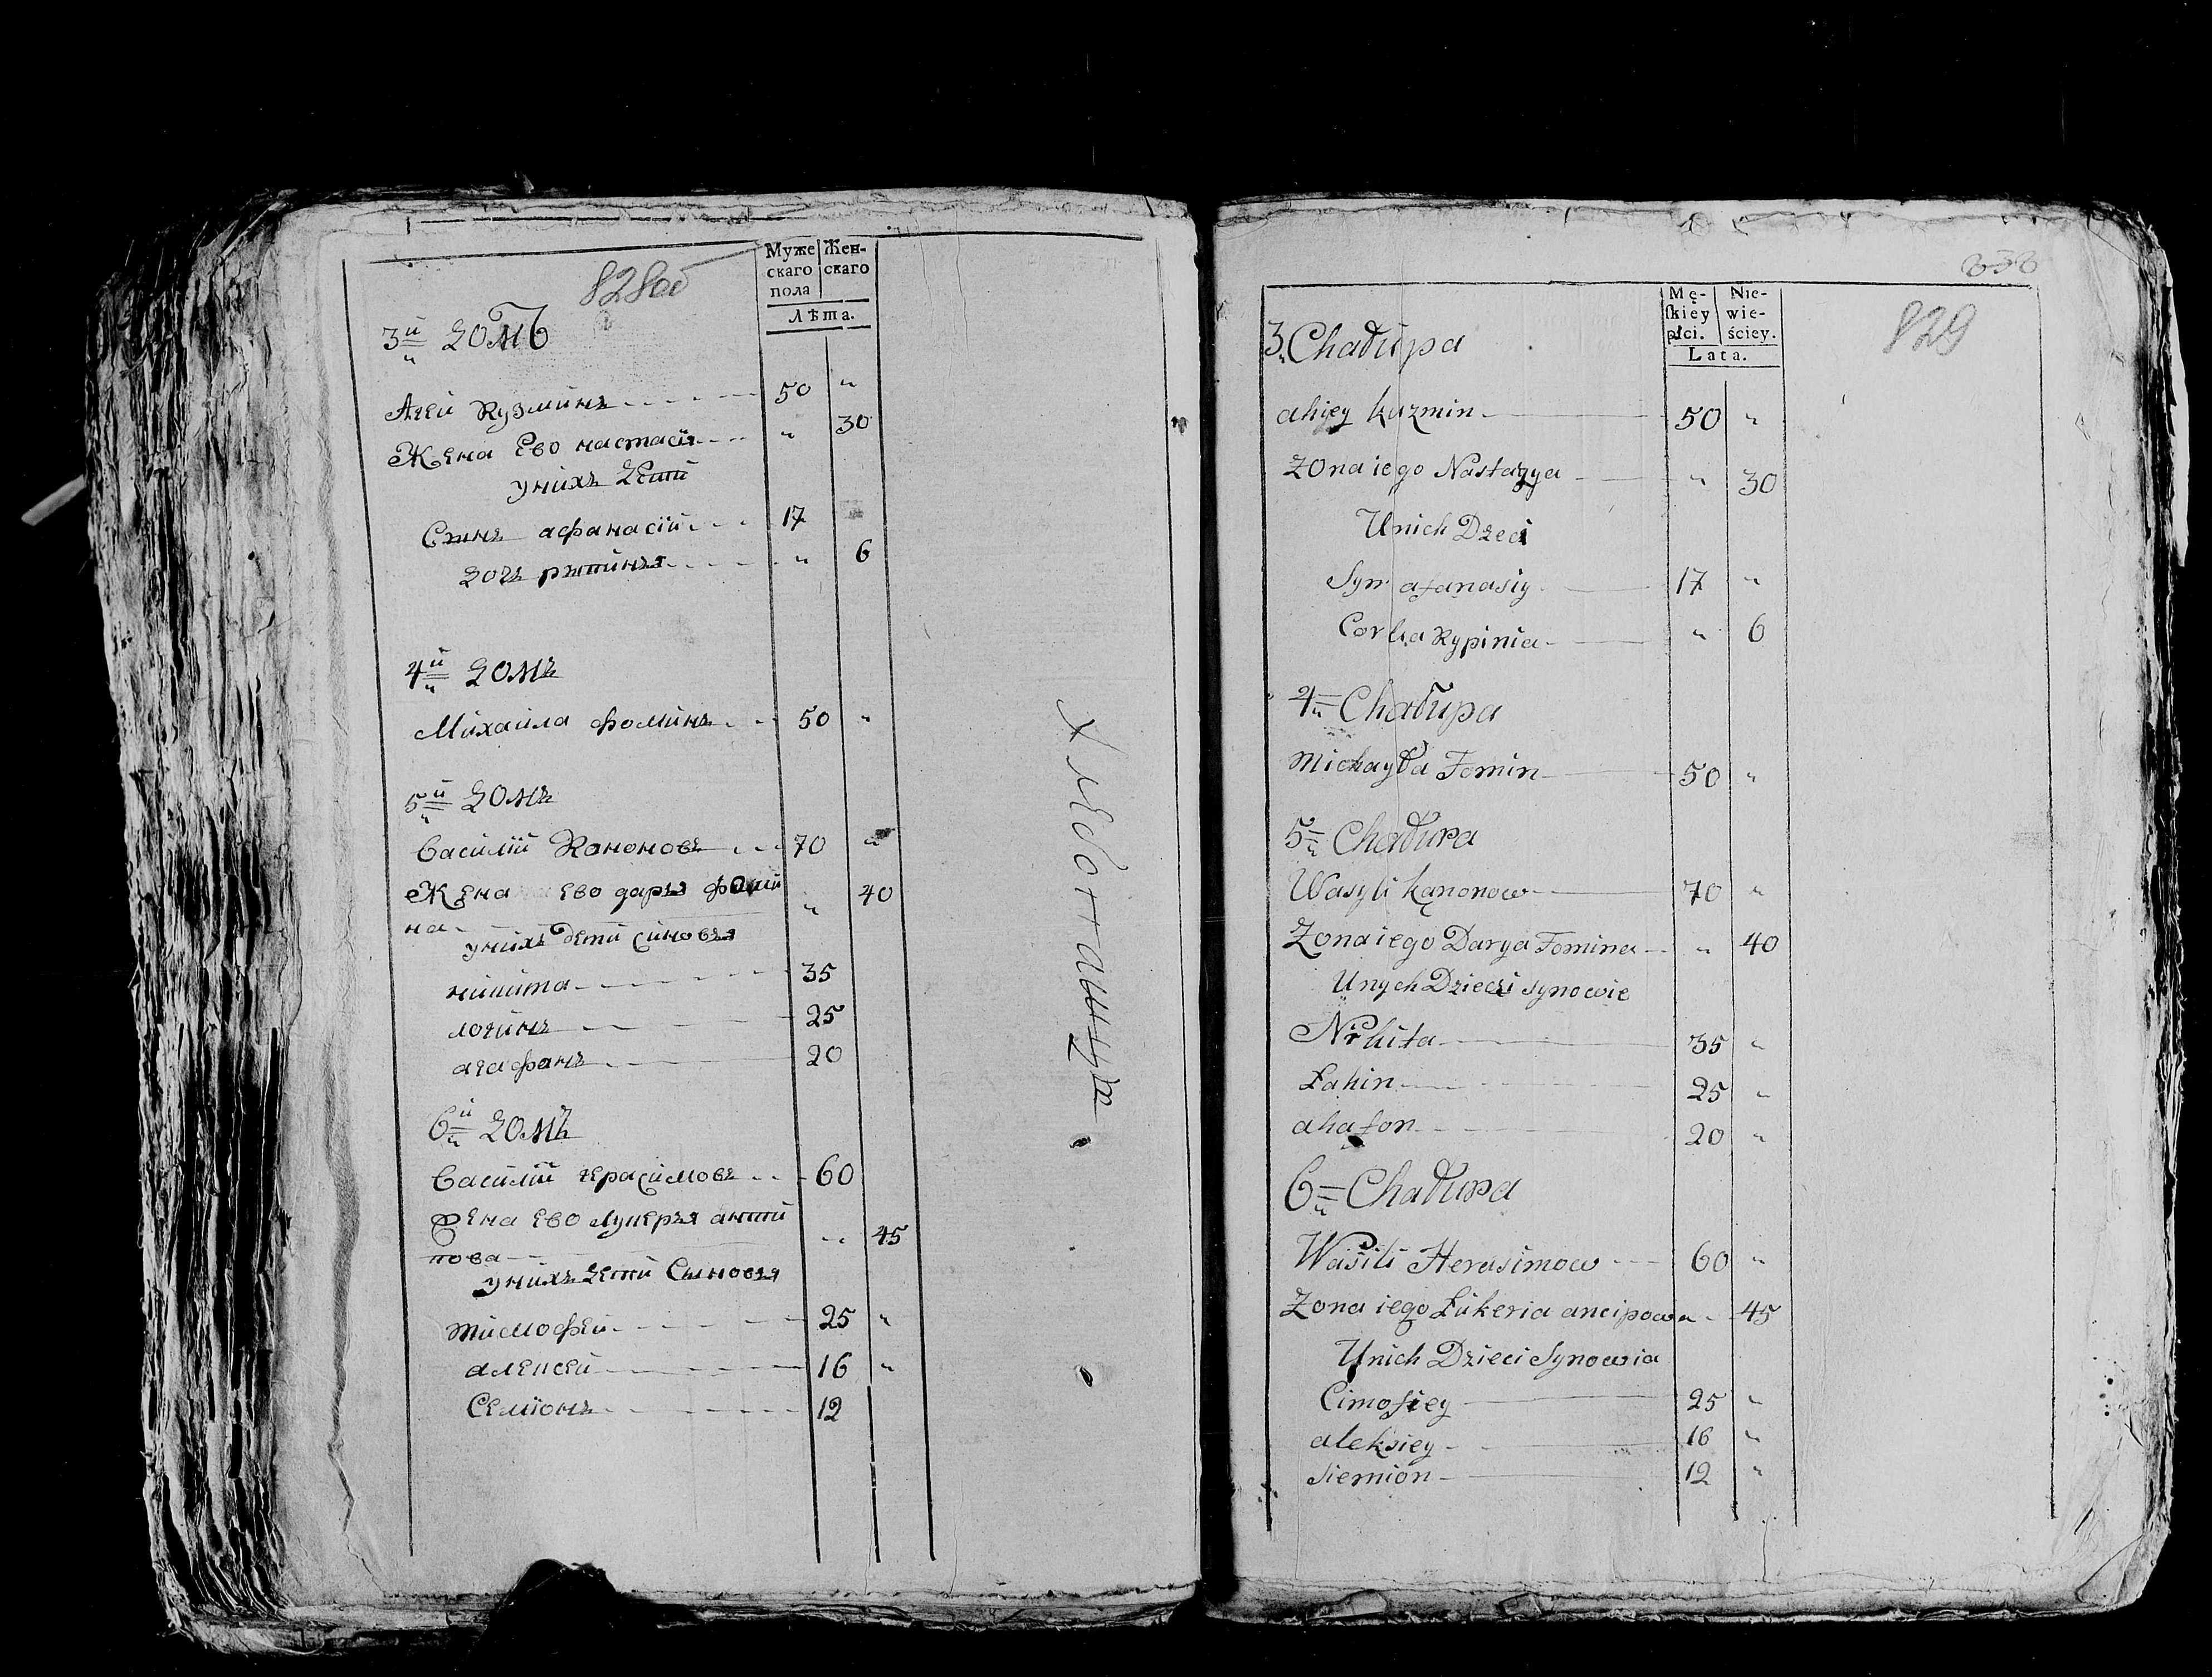 828об
Муже Жен-
скаго скаго
пола
Лѣта.
3й домъ
Агей Кузминъ 50 "
Жена Ево настасия " 30
у нихъ дети
Сынъ афанасiй 17
дочь рыпинья " 6
4й домъ
Михаила Фоминъ 50 "
5й домъ
Василiй Кононовъ 70 "
Жена ево дарья фоми " 40
на
у нихъ дети синовья
никита 35
логинъ 25
агафонъ 20
6й домъ
Василiй герасимовъ 60
Жена ево лукерья анти " 45
пова
у нихъ дети Сыновья
тимофей 25 "
алексей 16 "
Семiонъ 12
829
Mę- Nie-
skiey wie-
płci. ściey.
Lata.
3 Chałupa
ahiey kuzmin 50 "
Zona iego Nastazya " 30
U nich Dzeci
Syn afanasiy 17 "
Corka Rypinia " 6
4 Chałupa
Michayła Fomin 50 "
5 Chałupa
Wasyli kononow 70 "
Zona iego Darya Fomina " 40
U nych Dzieci synowie
Nikita 35 "
Łahin 25 "
ahafon 20 "
6 Chałupa
Wasili Herasimow 60 "
Zona iego Łukeria ancipowa " 45
U nich Dzieci Synowia
Cimofiey 25 "
aleksiey 16 "
Siemion 12 "